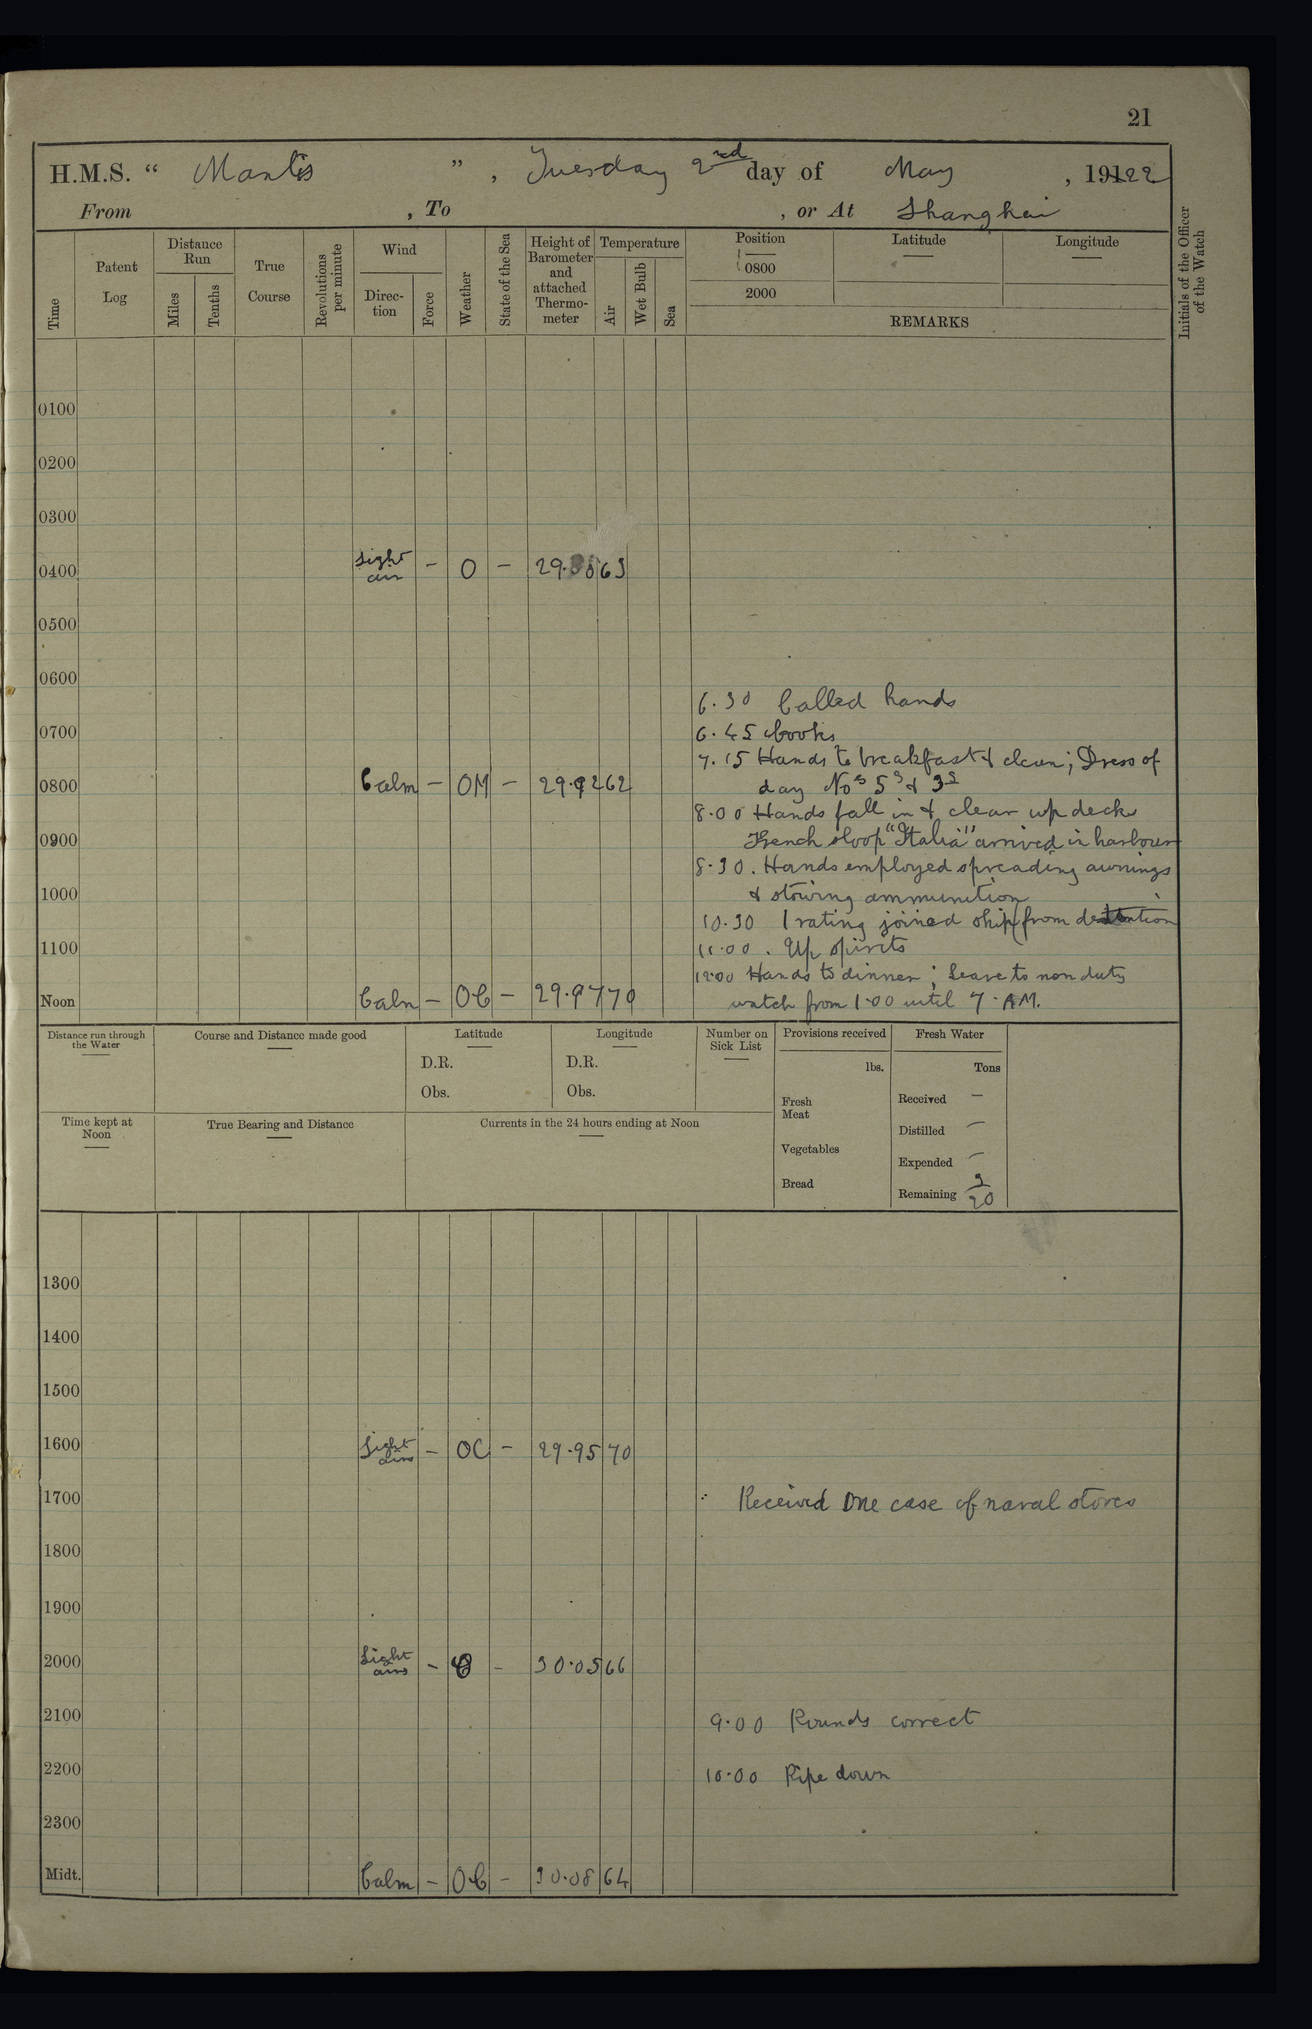 21
H.M.S. “ Mantis ”, Tuesday 2nd day of May , 19122
From , To , or At Shanghai
Time
Patent Log
Distance Run
Miles
Tenths
True Course
Revolutions per minute
Wind
Direction
Force
Weather
State of the Sea
Height of Barometer and attached Thermometer
Temperature
Air
Wet Bulb
Sea
Position
Latitude
Longitude
0800
2000
REMARKS
Initials of the Officer of the Watch
0100
0200
0300
0400 Light air - O - 63
0500
0600
6.30 Called hands
0700
6.45 Cooks
7.15 Hands to breakfast & clean; Dress of
0800 Calm - OM - 29.92 62
day Nos 5s & 3s
8.00 Hands fall in & clear up decks
0900
French sloop "Italia" arrived in harbour
8.30. Hands employed spreading awnings
1000
& stowing ammunition
10.30 1 rating joined ship (from detention
1100
11.00. Up spirits
12.00 Hands to dinner; Leave to non duty
Noon Calm - OC - 29.97 70
watch from 1.00 until 7.AM.
Distance run through the Water
Course and Distance made good
Latitude
D.R.
Obs.
Longitude
D.R.
Obs.
Number on Sick List
Provisions received
lbs.
Fresh Meat
Vegetables
Bread
Fresh Water
Tons
Received -
Distilled -
Expended -
Remaining 3/20
Time kept at Noon
True Bearing and Distance
Currents in the 24 hours ending at Noon
1300
1400
1500
1600 Light airs - OC - 29.95 70
1700 Received One case of naval stores
1800
1900
2000 Light airs - C - 30.05 66
2100 9.00 Rounds correct
2200 10.00 Pipe down
2300
Midt. Calm - OC - 30.08 64